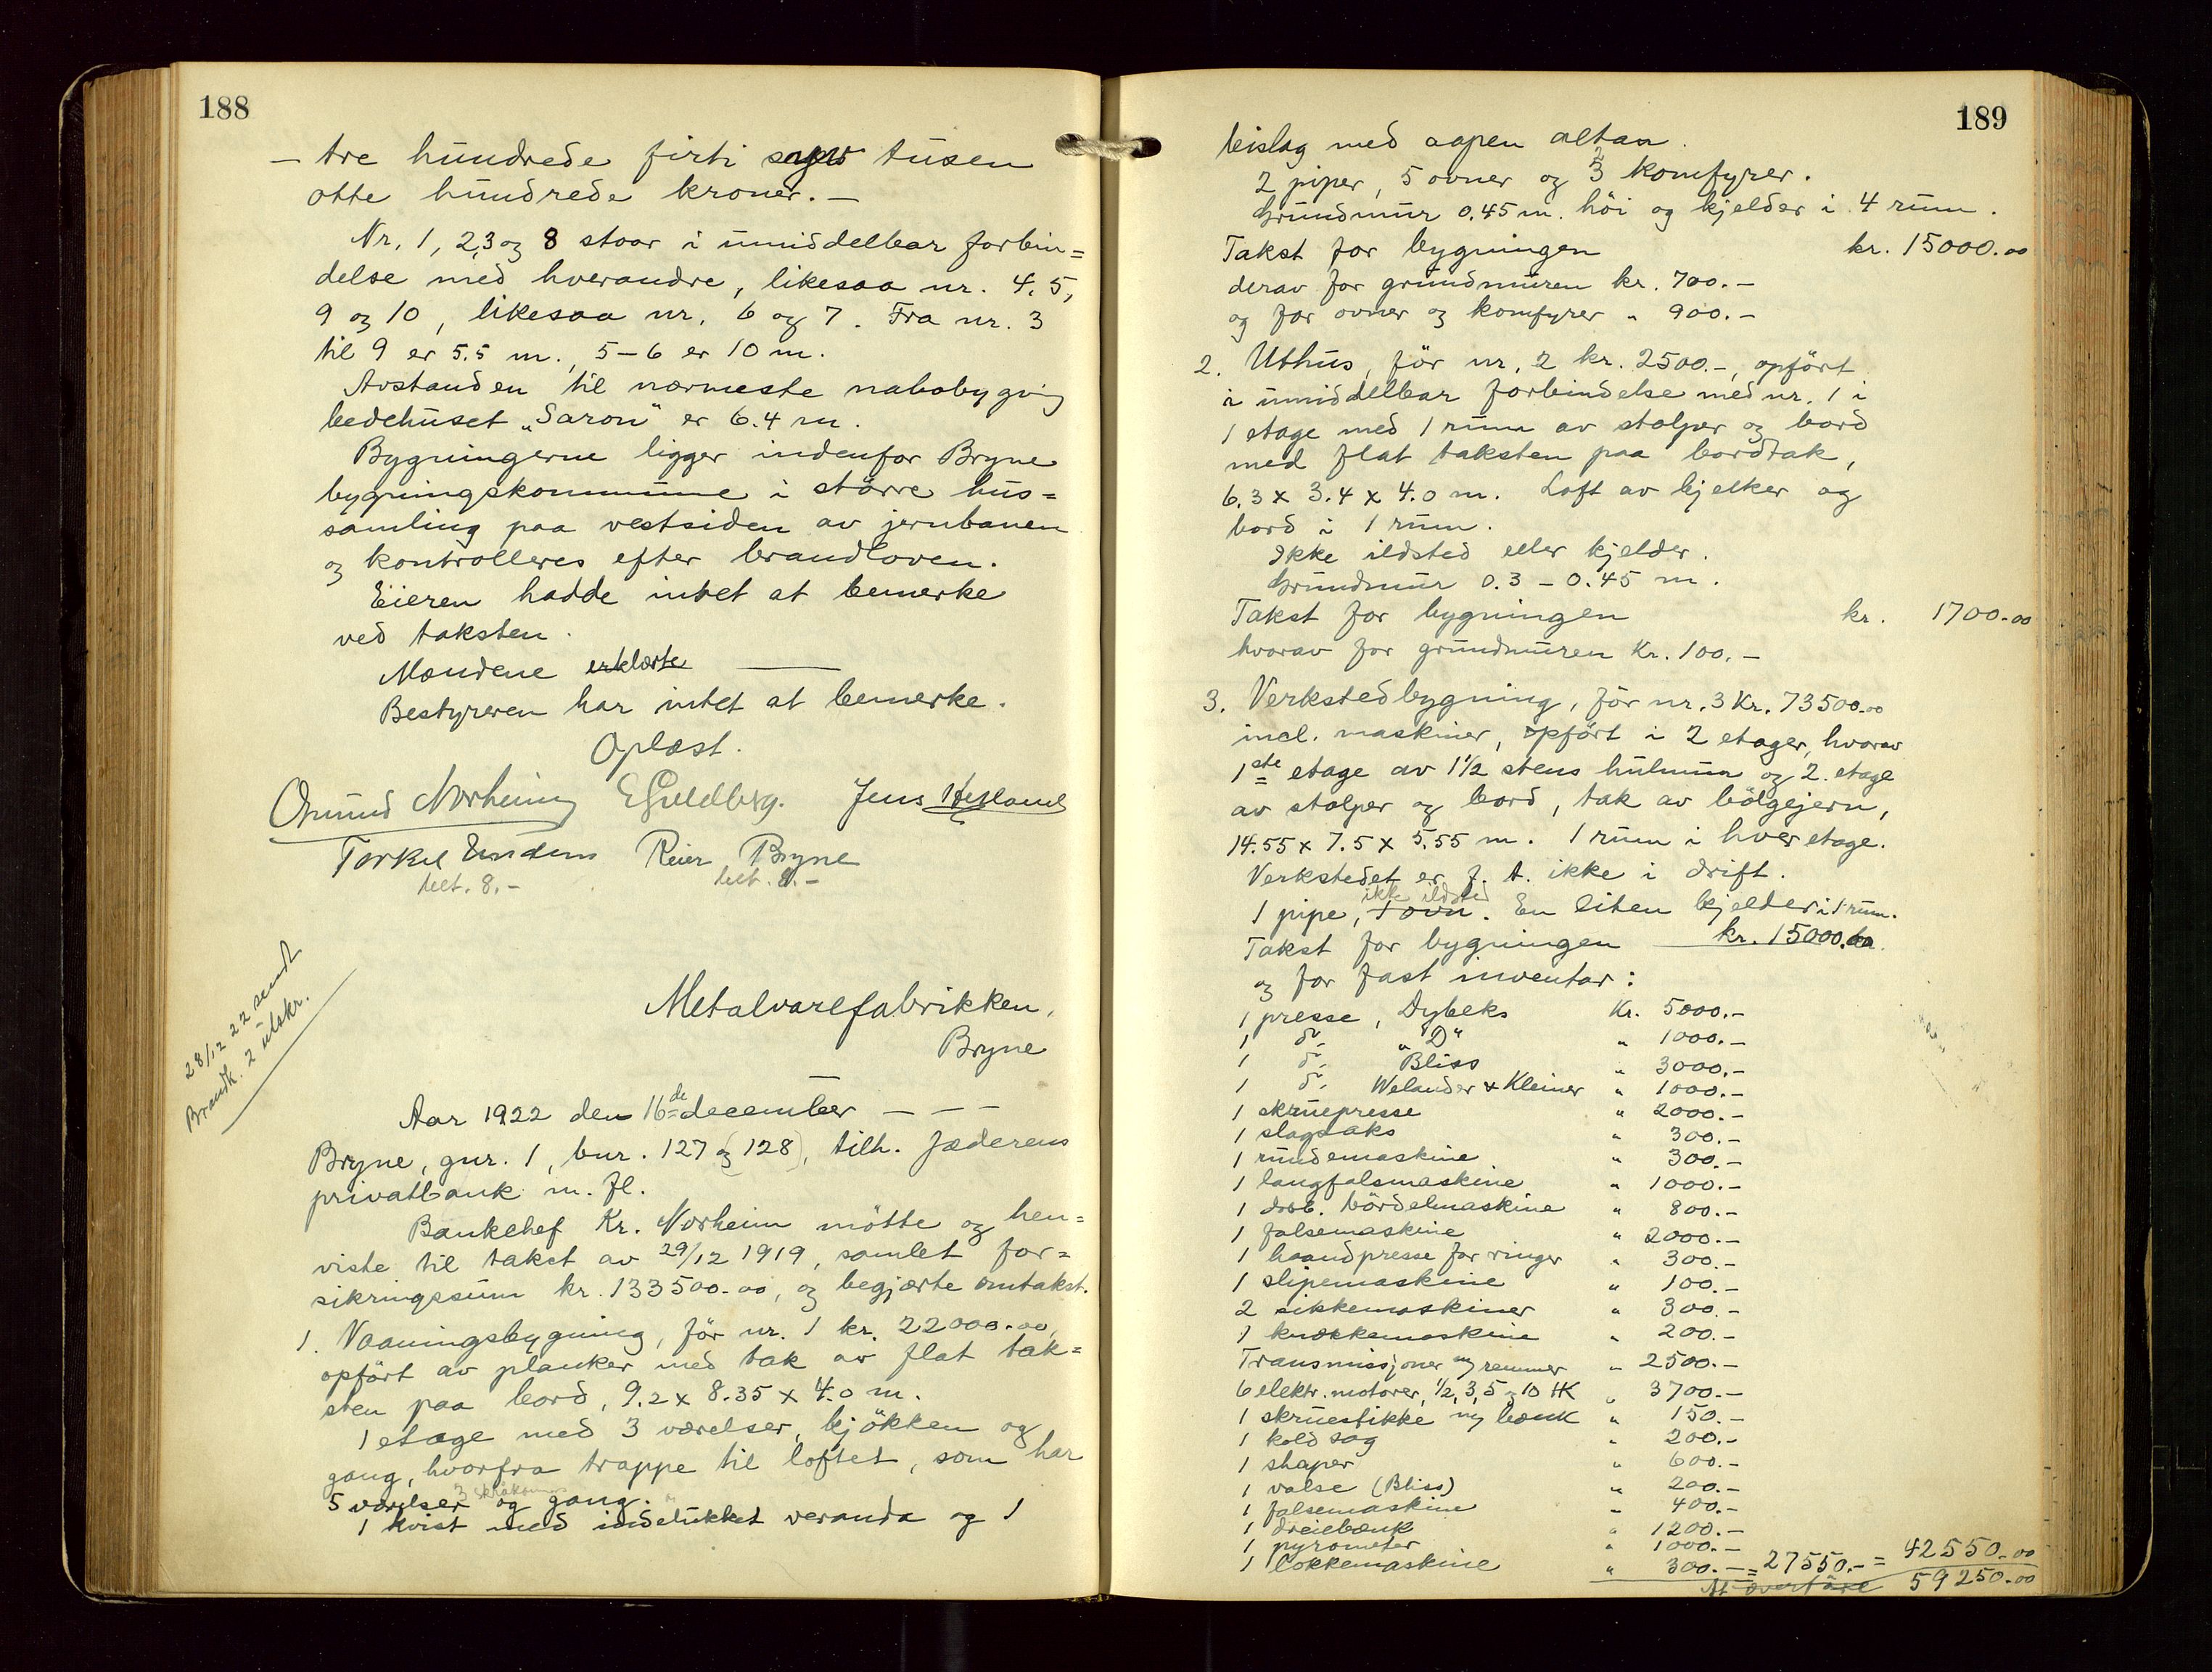 188
— tre hundrede firti syv tusen
otte hundrede kroner. —
Nr. 1, 2, 3 og 8 staar i umiddelbar forbin=
delse med hverandre, likesaa nr. 4, 5,
9 og 10, likesaa nr. 6 og 7. Fra nr. 3
til 9 er 5.5 m., 5–6 er 10 m.
Avstanden til nærmeste nabobygning
bedehuset „Saron" er 6.4 m.
Bygningerne ligger indenfor Bryne
bygningskommune i större hus=
samling paa vestsiden av jernbanen
og kontrolleres efter brandloven.
Eieren hadde intet at bemerke
ved taksten.
Mændene erklærte ———
Bestyreren har intet at bemerke.
Oplæst.
Omund Norheim E Guldberg. Jens Hetland
Torkel Undem Reier Bryne
bet. 8.– bet. 8.–
28/12 22 sendt
Brandk. 2 utskr.
Metalvarefabrikken,
Bryne
Aar 1922 den 16de december – – –
Bryne, gnr. 1, bnr. 127 og (128), tilh. Jæderens
privatbank m. fl.
Bankchef Kr. Norheim mötte og hen=
viste til takst av 29/12 1919, samlet for=
sikringssum kr. 133500.00, og begjærte omtakst.
1. Vaaningsbygning, för nr. 1 kr. 22000.00,
opfört av planker med tak av flat tak=
sten paa bord, 9.2 x 8.35 x 4.0 m.
1 etage med 3 værelser, kjökken og
gang, hvorfra trappe til loftet, som har
5 værelser og gang.
1 kvist med indelukket veranda og 1
189
bislag med aapen altan.
2 piper, 5 ovner og 3 2 komfyrer.
Grundmur 0.45 m. höi og kjelder i 4 rum.
Takst for bygningen kr. 15000.00
derav for grundmuren kr. 700.–
og for ovner og komfyrer " 900.–
2. Uthus, för nr. 2 kr. 2500.–, opfört
i umiddelbar forbindelse med nr. 1 i
1 etage med 1 rum av stolper og bord
med flat taksten paa bordtak,
6.3 x 3.4 x 4.0 m. Loft av bjelker og
bord i 1 rum.
Ikke ildsted eller kjelder.
Grundmur 0.3 – 0.45 m.
Takst for bygningen kr. 1700.00
hvorav for grundmuren Kr. 100.–
3. Verkstedbygning, för nr. 3 Kr. 73500.00
incl. maskiner, opfört i 2 etager, hvorav
1ste etage av 1½ stens hulmur og 2. etage
av stolper og bord, tak av bölgejern,
14.55 x 7.5 x 5.55 m. 1 rum i hver etage.
Verkstedet er f. t. ikke i drift.
ikke ildsted
1 pipe, 1 ovn. En liten kjelder i 1 rum.
Takst for bygningen kr. 15000.00
og for fast inventar:
1 presse, Dybeks Kr. 5000.–
1 do, „D" " 1000.–
1 do, Bliss " 3000.–
1 do, Welander & Kleiner " 1000.–
1 skruepresse " 2000.–
1 slagsaks " 300.–
1 rundemaskine " 300.–
1 langfalsmaskine " 1000.–
1 dob. bördelmaskine " 800.–
1 falsemaskine " 2000.–
1 haandpresse for ringer " 300.–
1 slipemaskine " 100.–
2 sikkemaskiner " 300.–
1 knækkemaskine " 200.–
Transmissjoner og remmer " 2500.–
6 elektr. motorer, ½, 3, 5 og 10 HK " 3700.–
1 skruestikke og bænk " 150.–
1 koldsag " 200.–
1 shaper " 600.–
1 valse (Bliss) " 200.–
1 falsemaskine " 400.–
1 dreiebænk " 1200.–
1 pyrometer " 1000.–
1 lokkemaskine " 300.– = 27550.– = 42550.00
At overföre 59250.00